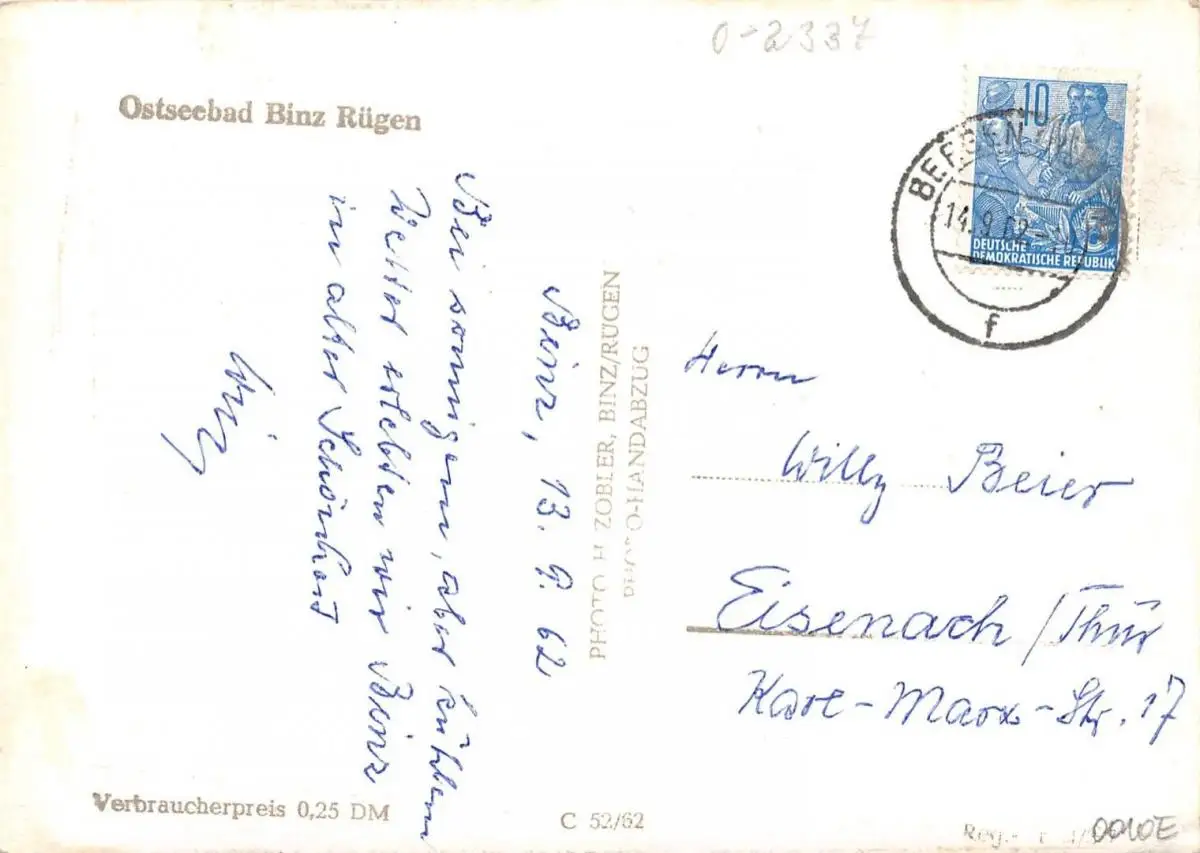 0-2337
Ostseebad Binz Rügen
10
DEUTSCHE
DEMOKRATISCHE REPUBLIK
BERGEN
14.9.62
f
Binz, 13. 9. 62
Bei sonnigem, aber kühlem
Wetter erlebten wir Binz
in alter Schönheit
PHOTO H. ZOBLER, BINZ/RÜGEN
PHOTO-HANDABZUG
Herrn
Willy Beier
Eisenach/Thür
Karl-Marx-Str. 17
Verbraucherpreis 0,25 DM
C 52/62
0010E